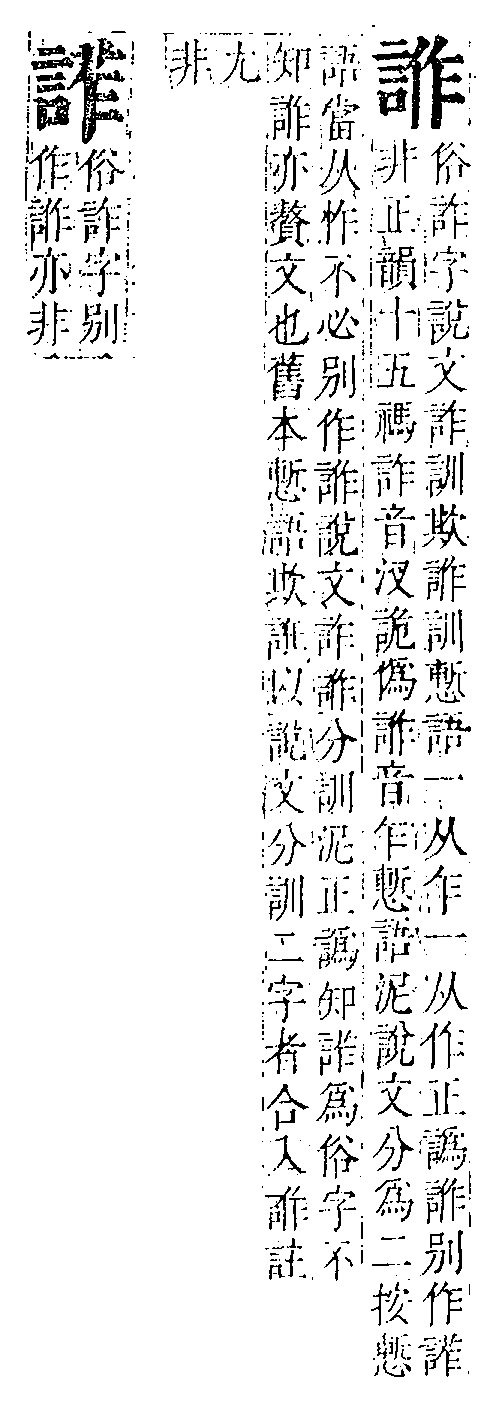 俗詐字說文詐訓欺訓慙語一从乍一从作正譌別作
非正韻十五禡詐音汊詭偽音乍慙語泥說文分爲二按慙
語當从怍不必別作說文詐分訓泥正譌知爲俗字不
知亦贅文也舊本慙語欺誑以說文分訓二字者合入註
尤
非
俗詐字別
作亦非